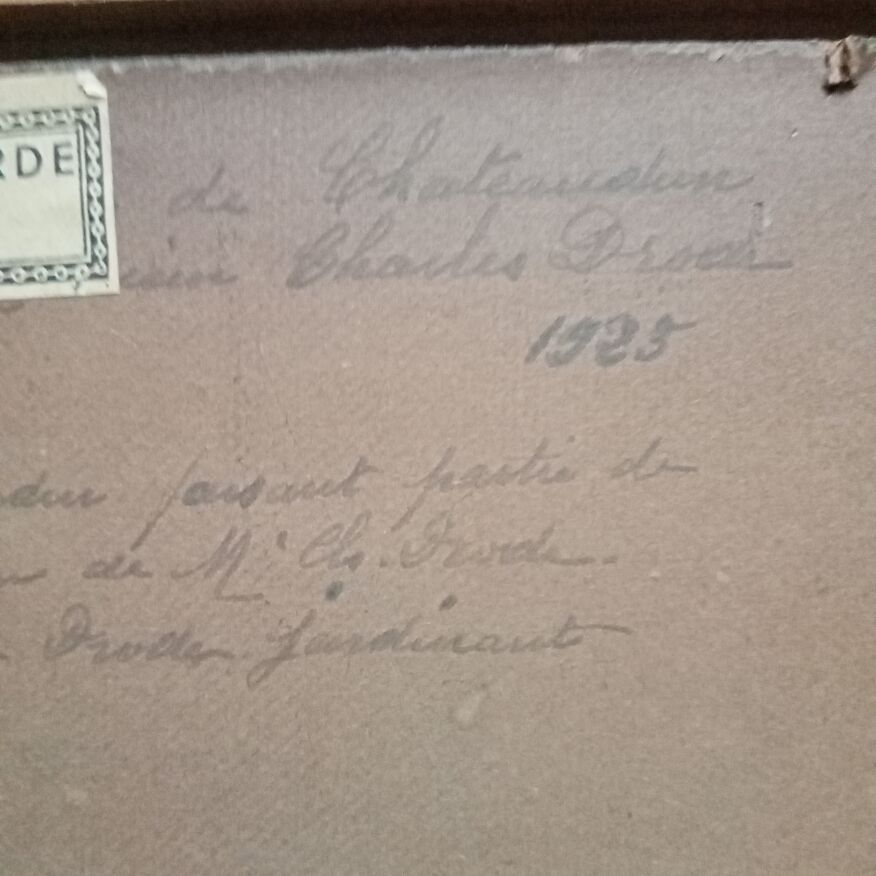 RDE
de Chateaudun
Charles Drode
1925
faisant partie de
de Mr Chs. Drode
Drode Jardinant